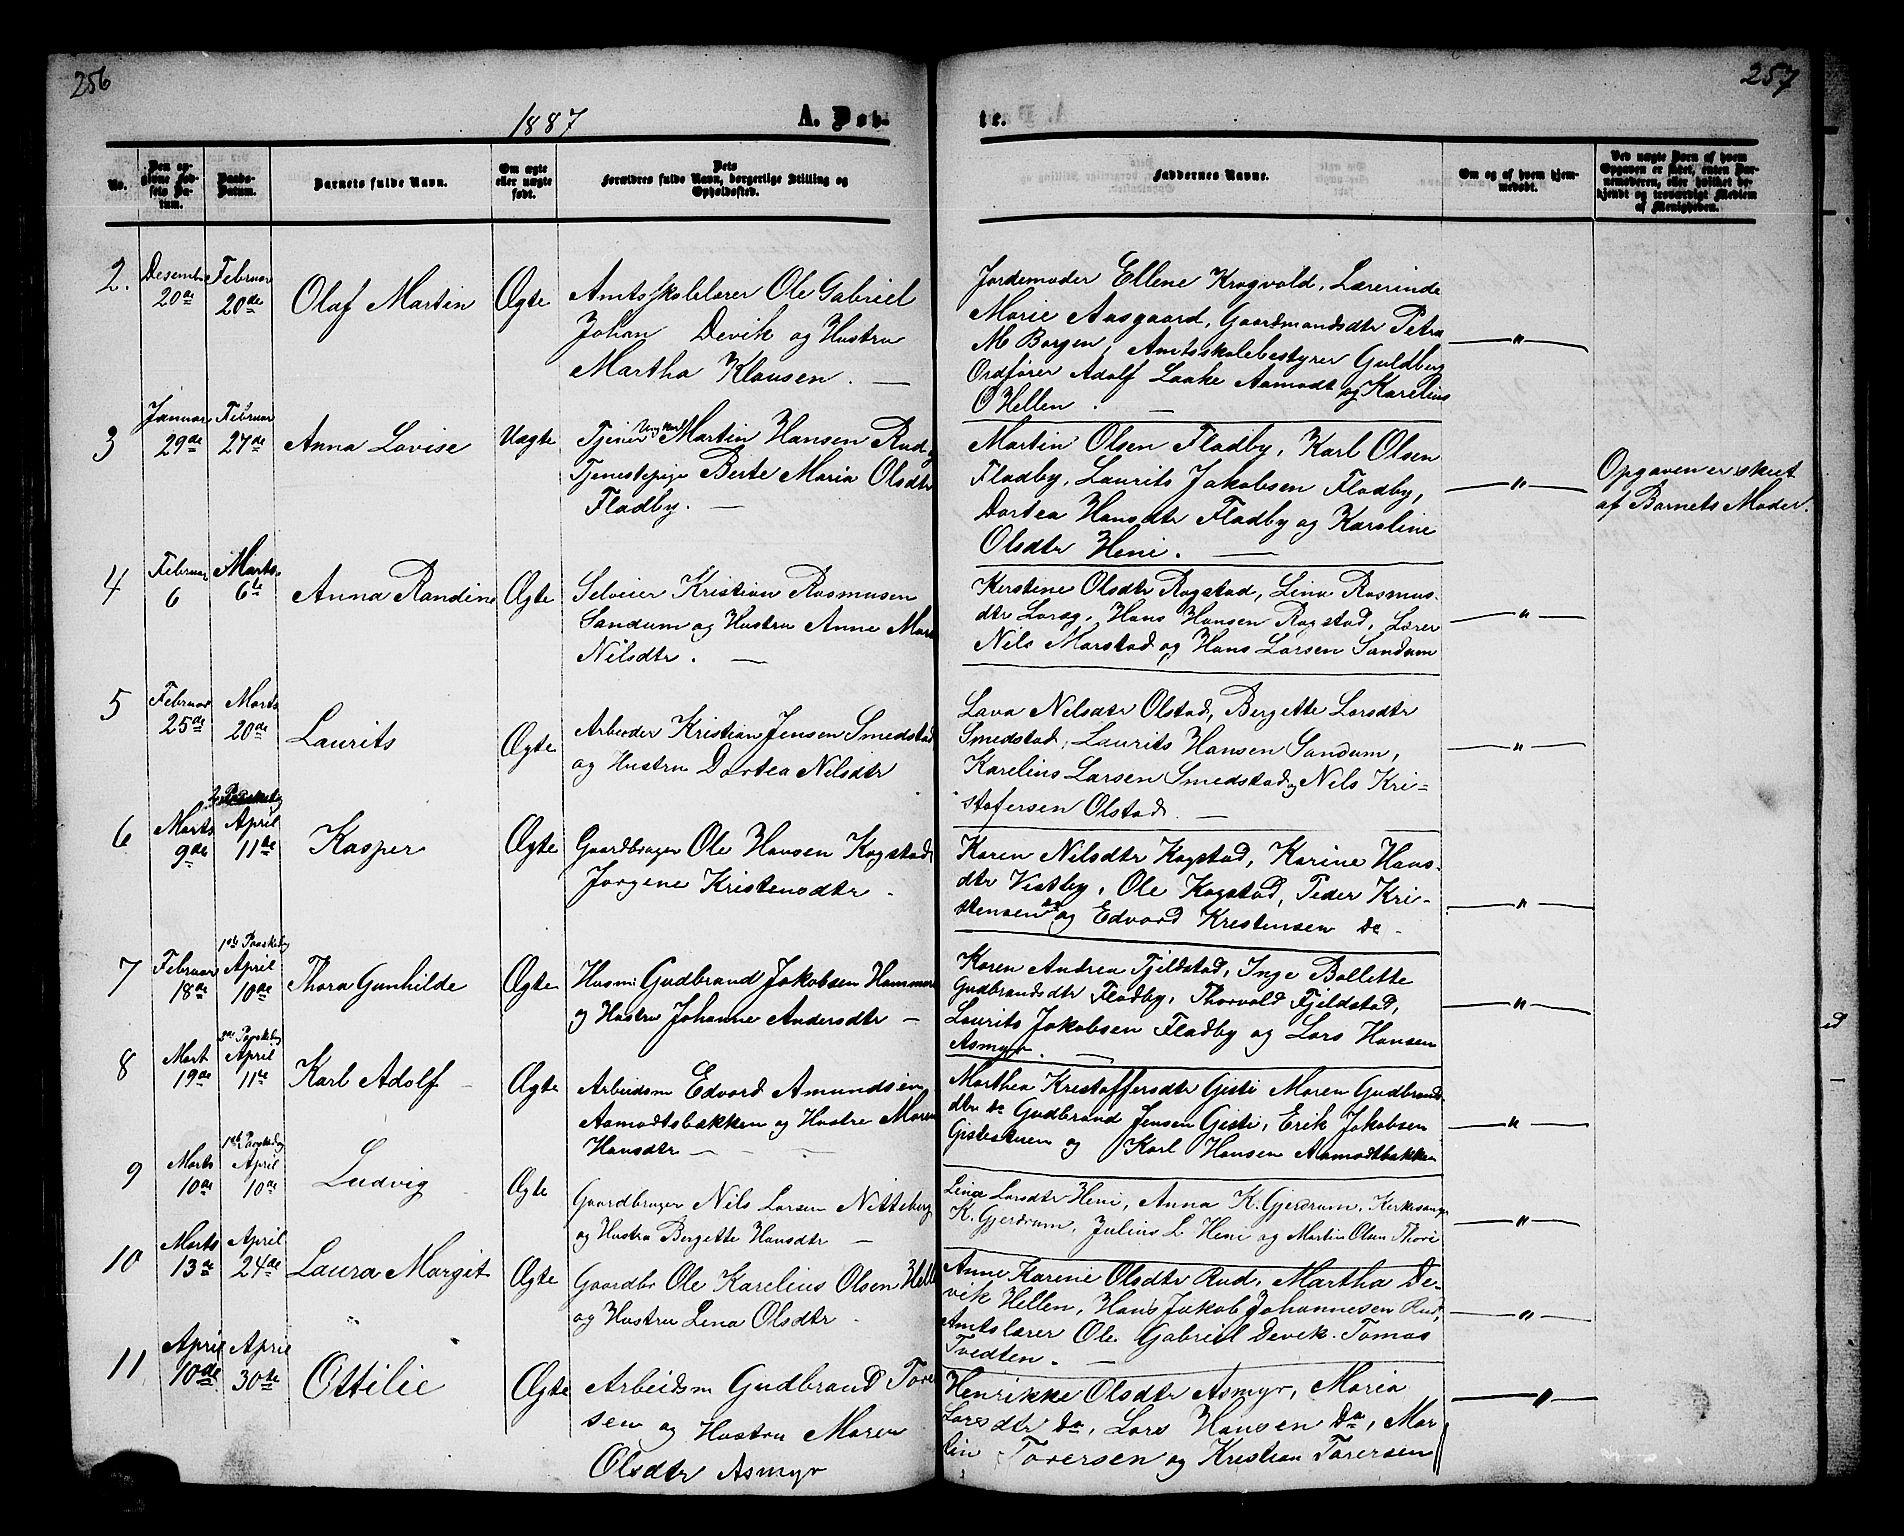 256
257
1887
A. Døb-
te.
No.
Den op-
givne Fød-
sels Da-
tum.
Daabs-
Datum.
Barnets fulde Navn.
Om ægte
eller uægte
født.
Dets
Forældres fulde Navn, borgerlige Stilling og
Opholdssted.
Faddernes Navne.
Om og af hvem hjem-
medøbt.
Ved uægte Børn af hvem
Opgaven er skeet, enten Bar-
nemoderen, eller hvilket be-
kjendt og troværdigt Medlem
af Menigheden.
2. Desember 20de Februar 20de Olaf Martin Ægte
Amtsskolelærer Ole Gabriel
Johan Devik og Hustru
Martha Klausen. —
Jordemoder Ellene Krogvold, Lærerinde
Marie Aasgaard, Gaardmandsdtr Petra
M Borgen, Amtsskolebestyrer Guldberg
Ordfører Adolf Laake Aamodt og Karelius
O Hellen. —
— " —
3 Januar 29de Februar 27de Anna Lovise Uægte
Tjener Ungkarl Martin Hansen Rud,
Tjenestepige Berte Maria Olsdtr
Fladby. —
Martin Olsen Fladby, Karl Olsen
Fladby, Laurits Jakobsen Fladby,
Dortea Hansdtr Fladby og Karoline
Olsdtr Heni. —
— " —
Opgaven er skeet
af Barnets Moder.
4 Februar 6 Marts 6te Anna Randine Ægte
Selveier Kristian Rasmusen
Sandum og Hustru Anne Mar
Nilsdtr. —
Kerstene Olsdtr Rogstad, Lina Rasmus-
dtr Loræg, Hans Hansen Rogstad, Lærer
Nils Marstad og Hans Larsen Sandum
— " —
5 Februar 25de Marts 20de Laurits Ægte
Arbeider Kristian Jensen Smedstad
og Hustru Dortea Nilsdtr
Lava Nilsdtr Olstad, Bergette Larsdtr
Smedstad, Laurits Hansen Sandum,
Karelius Larsen Smedstad og Nils Kri-
stofersen Olstad. —
— " —
6 Marts 9de April 11de Kasper Ægte
Gaardbruger Ole Hansen Kogstad
Jørgene Kristensdtr.
Karen Nilsdtr Kogstad, Karine Hans-
dtr Vestby, Ole Kogstad, Peder Kri-
stensen do og Edvard Kristensen do -
— " —
7 Februar 18de 1ste Paaskedag April 10de Thora Gunhilde Ægte
Husm: Gudbrand Jakobsen Hammer
og Hustru Johanne Andersdtr —
Karen Andrea Fjeldstad, Inge Bollette
Gudbrandsdtr Fladby, Thorvald Fjeldstad,
Laurits Jakobsen Fladby og Lars Hansen
Asmyr. —
— " —
8 Mart 19de 2den Paaskedag April 11te Karl Adolf Ægte
Arbeidsm Edvard Amundsen
Aamodtsbakken og Hustru Maren
Hansdtr — — —
Marthea Kristoffersdtr Gisti Maren Gudbrand-
dtr do Gudbrand Jensen Gisti, Erik Jakobsen
Gistestuen og Karl Hansen Aamodtbakken
— " —
9 Marts 10de 1ste Paaskedag April 10de Ludvig Ægte
Gaardbruger Nils Larsen Nitteberg
og Hustru Bergette Hansdtr —
Lina Larsdtr Heni, Anna K. Gjerdrum, Kirkesanger
K. Gjerdrum, Julius L Heni og Martin Olsen Thori
— " —
10 Marts 13de April 24de Laura Margit Ægte
Gaardbr Ole Karelius Olsen Helle
og Hustru Lena Olsdtr.
Anne Karine Olsdtr Rud, Martha De-
vek Hellen, Hans Jakob Johannesen Rud,
Amtslærer Ole Gabriel Devek. Tomas
Tvedten. —
— " —
11 April 10de April 30te Ottilie Ægte
Arbeidsm Gudbrand Tore
sen og Hustru Maren
Olsdtr Asmyr
Henrikke Olsdtr Asmyr, Maria
Larsdtr do, Lars Hansen do, Mar
tin Torersen og Kristian Torersen
— " —